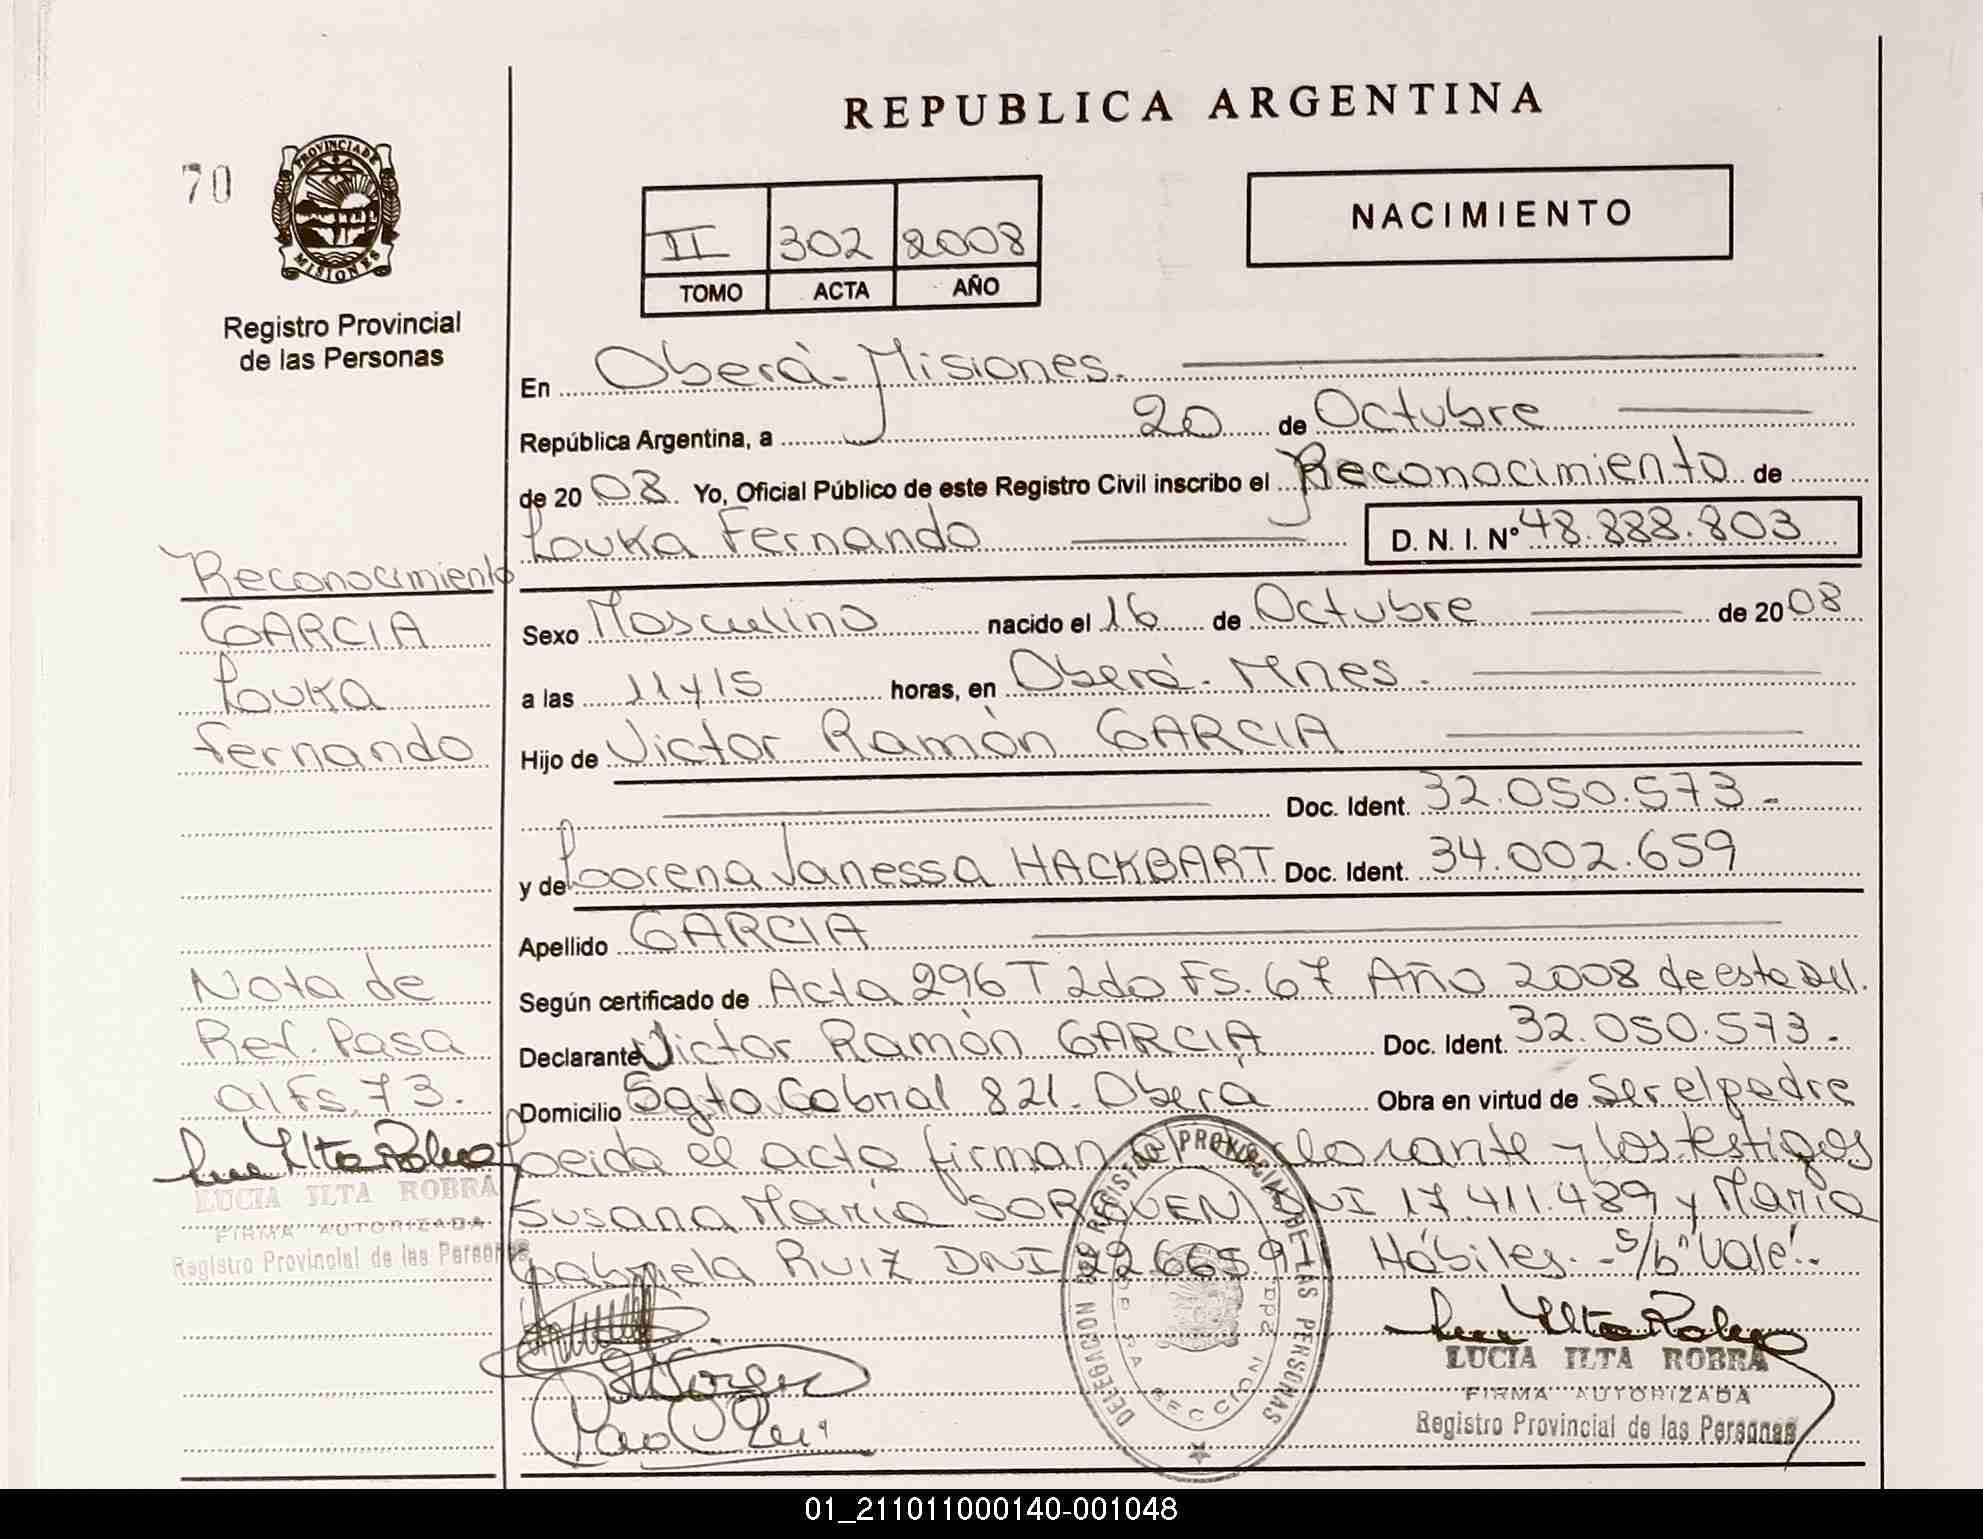 REPUBLICA ARGENTINA
70
PROVINCIA DE
MISIONES
Registro Provincial
de las Personas
II 302 2008
TOMO ACTA AÑO
NACIMIENTO
En Oberá - Misiones.
República Argentina, a 20 de Octubre
de 20 08. Yo, Oficial Público de este Registro Civil inscribo el Reconocimiento de
Louka Fernando D. N. I. Nº 48.888.803
Sexo Masculino nacido el 16 de Octubre de 20 08
a las 11 y 15 horas, en Oberá - Mnes.
Hijo de Victor Ramón GARCIA
Doc. Ident. 32.050.573.-
y de Lorena Vanessa HACKBART Doc. Ident. 34.002.659
Apellido GARCIA
Según certificado de Acta 296 T 2do Fs. 67 Año 2008 de esta Del.
Declarante Victor Ramón GARCIA Doc. Ident. 32.050.573.-
Domicilio Sgto Cabral 821. Oberá Obra en virtud de Ser el padre
Leida el acta firman el declarante y los testigos
Susana Maria DNI 17.411.489 y Maria
Gabriela Ruiz DNI Hábiles.- s/b "Vale".-
Reconocimiento
GARCIA
Louka
Fernando
Nota de
Ref. Pasa
al Fs. 73.
LUCIA ILTA ROBRA
FIRMA AUTORIZADA
Registro Provincial de las Personas
DELEGACION REGISTRO PROVINCIAL DE LAS PERSONAS
SECCION
LUCIA ILTA ROBRA
FIRMA AUTORIZADA
Registro Provincial de las Personas
01_211011000140-001048